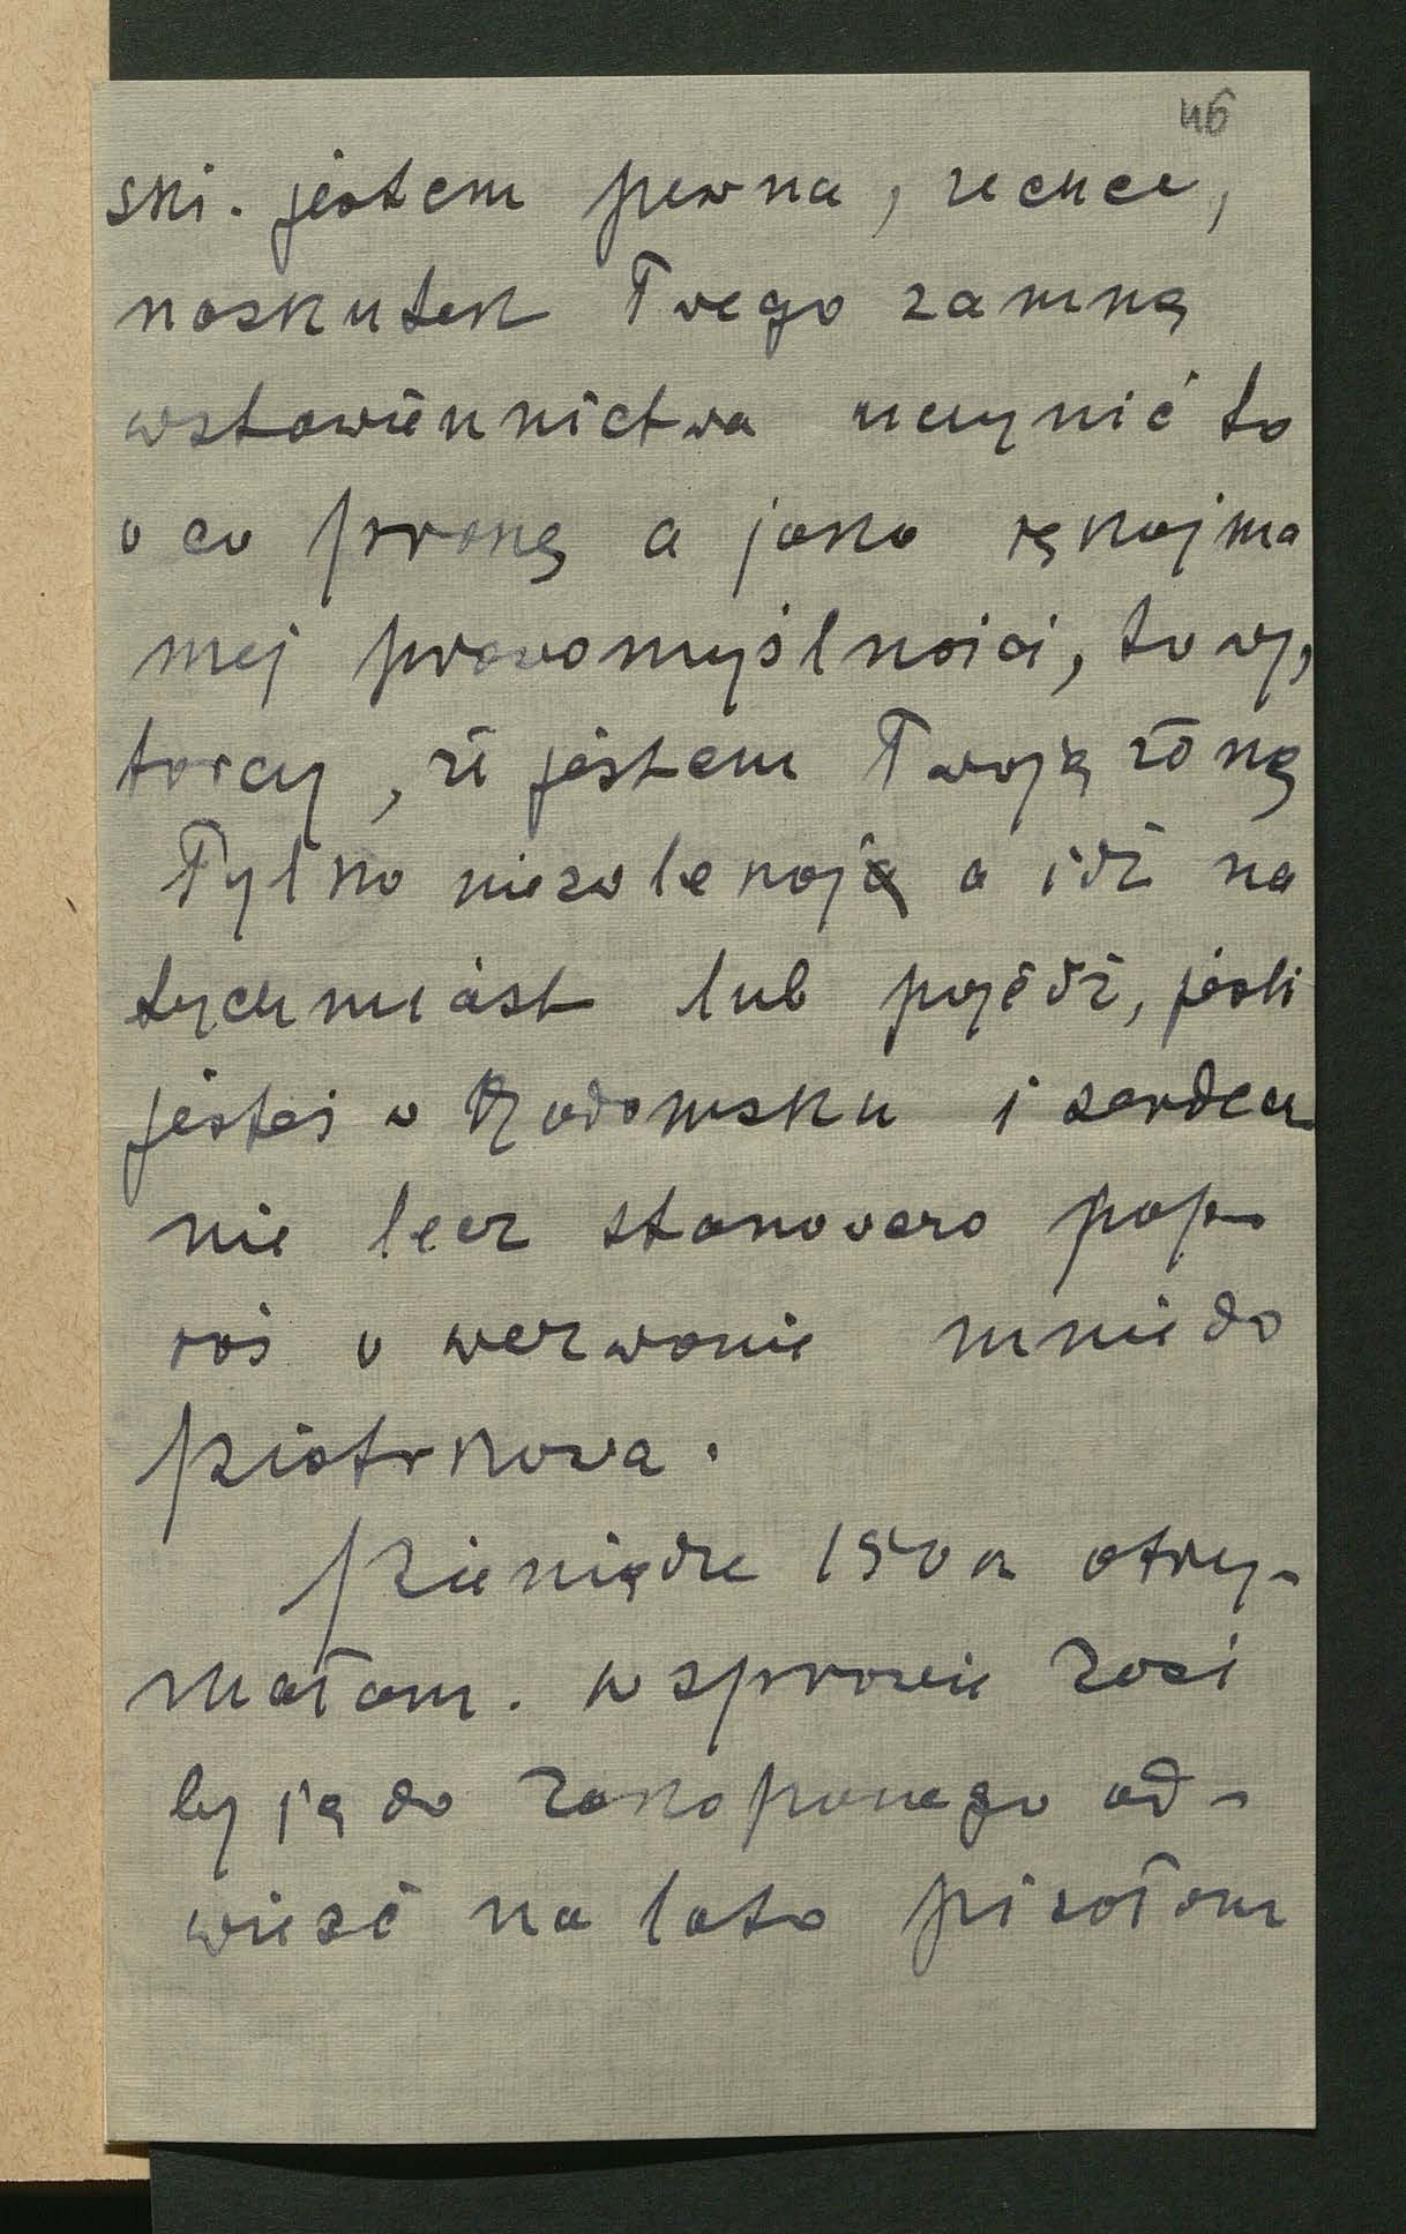 46
ski. jestem pewna, ze chce,
naskutek Twego zamną
wstawiennictwa uczynić to
o co proszę a jako rękojma
mej prawomyślności, to wy,
tarczy, że jestem Twoją żoną
Tylko niezolekają a idź na
tychmiast lub pojedź, jeśli
jesteś w Radomsku i serdecz
nie lecz stanowczo pop-
roś o wezwanie mnie do
Piotrkowa.
Pieniądze 150 k otrzy-
małam. w sprawie Zosi
by ją do Zakopanego od-
wieść na lato pisałam